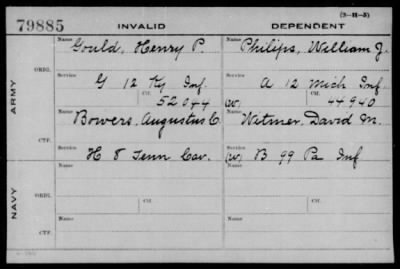 (3-11-5)
79885 INVALID DEPENDENT
Name Gould, Henry P. Name Philips, William J.
ARMY
ORIG.
Service G 12 Ky Inf. Service A 12 Mich Inf
Ctf. 52044 (W) Ctf. 44940
Name Bowers, Augustus C. Name Witmer, David M.
CTF.
Service H 8 Tenn Cav. Service (W) B 99 Pa Inf
Name Name
NAVY
ORIG.
Service Ctf. Service Ctf.
Name Name
CTF.
Service Service